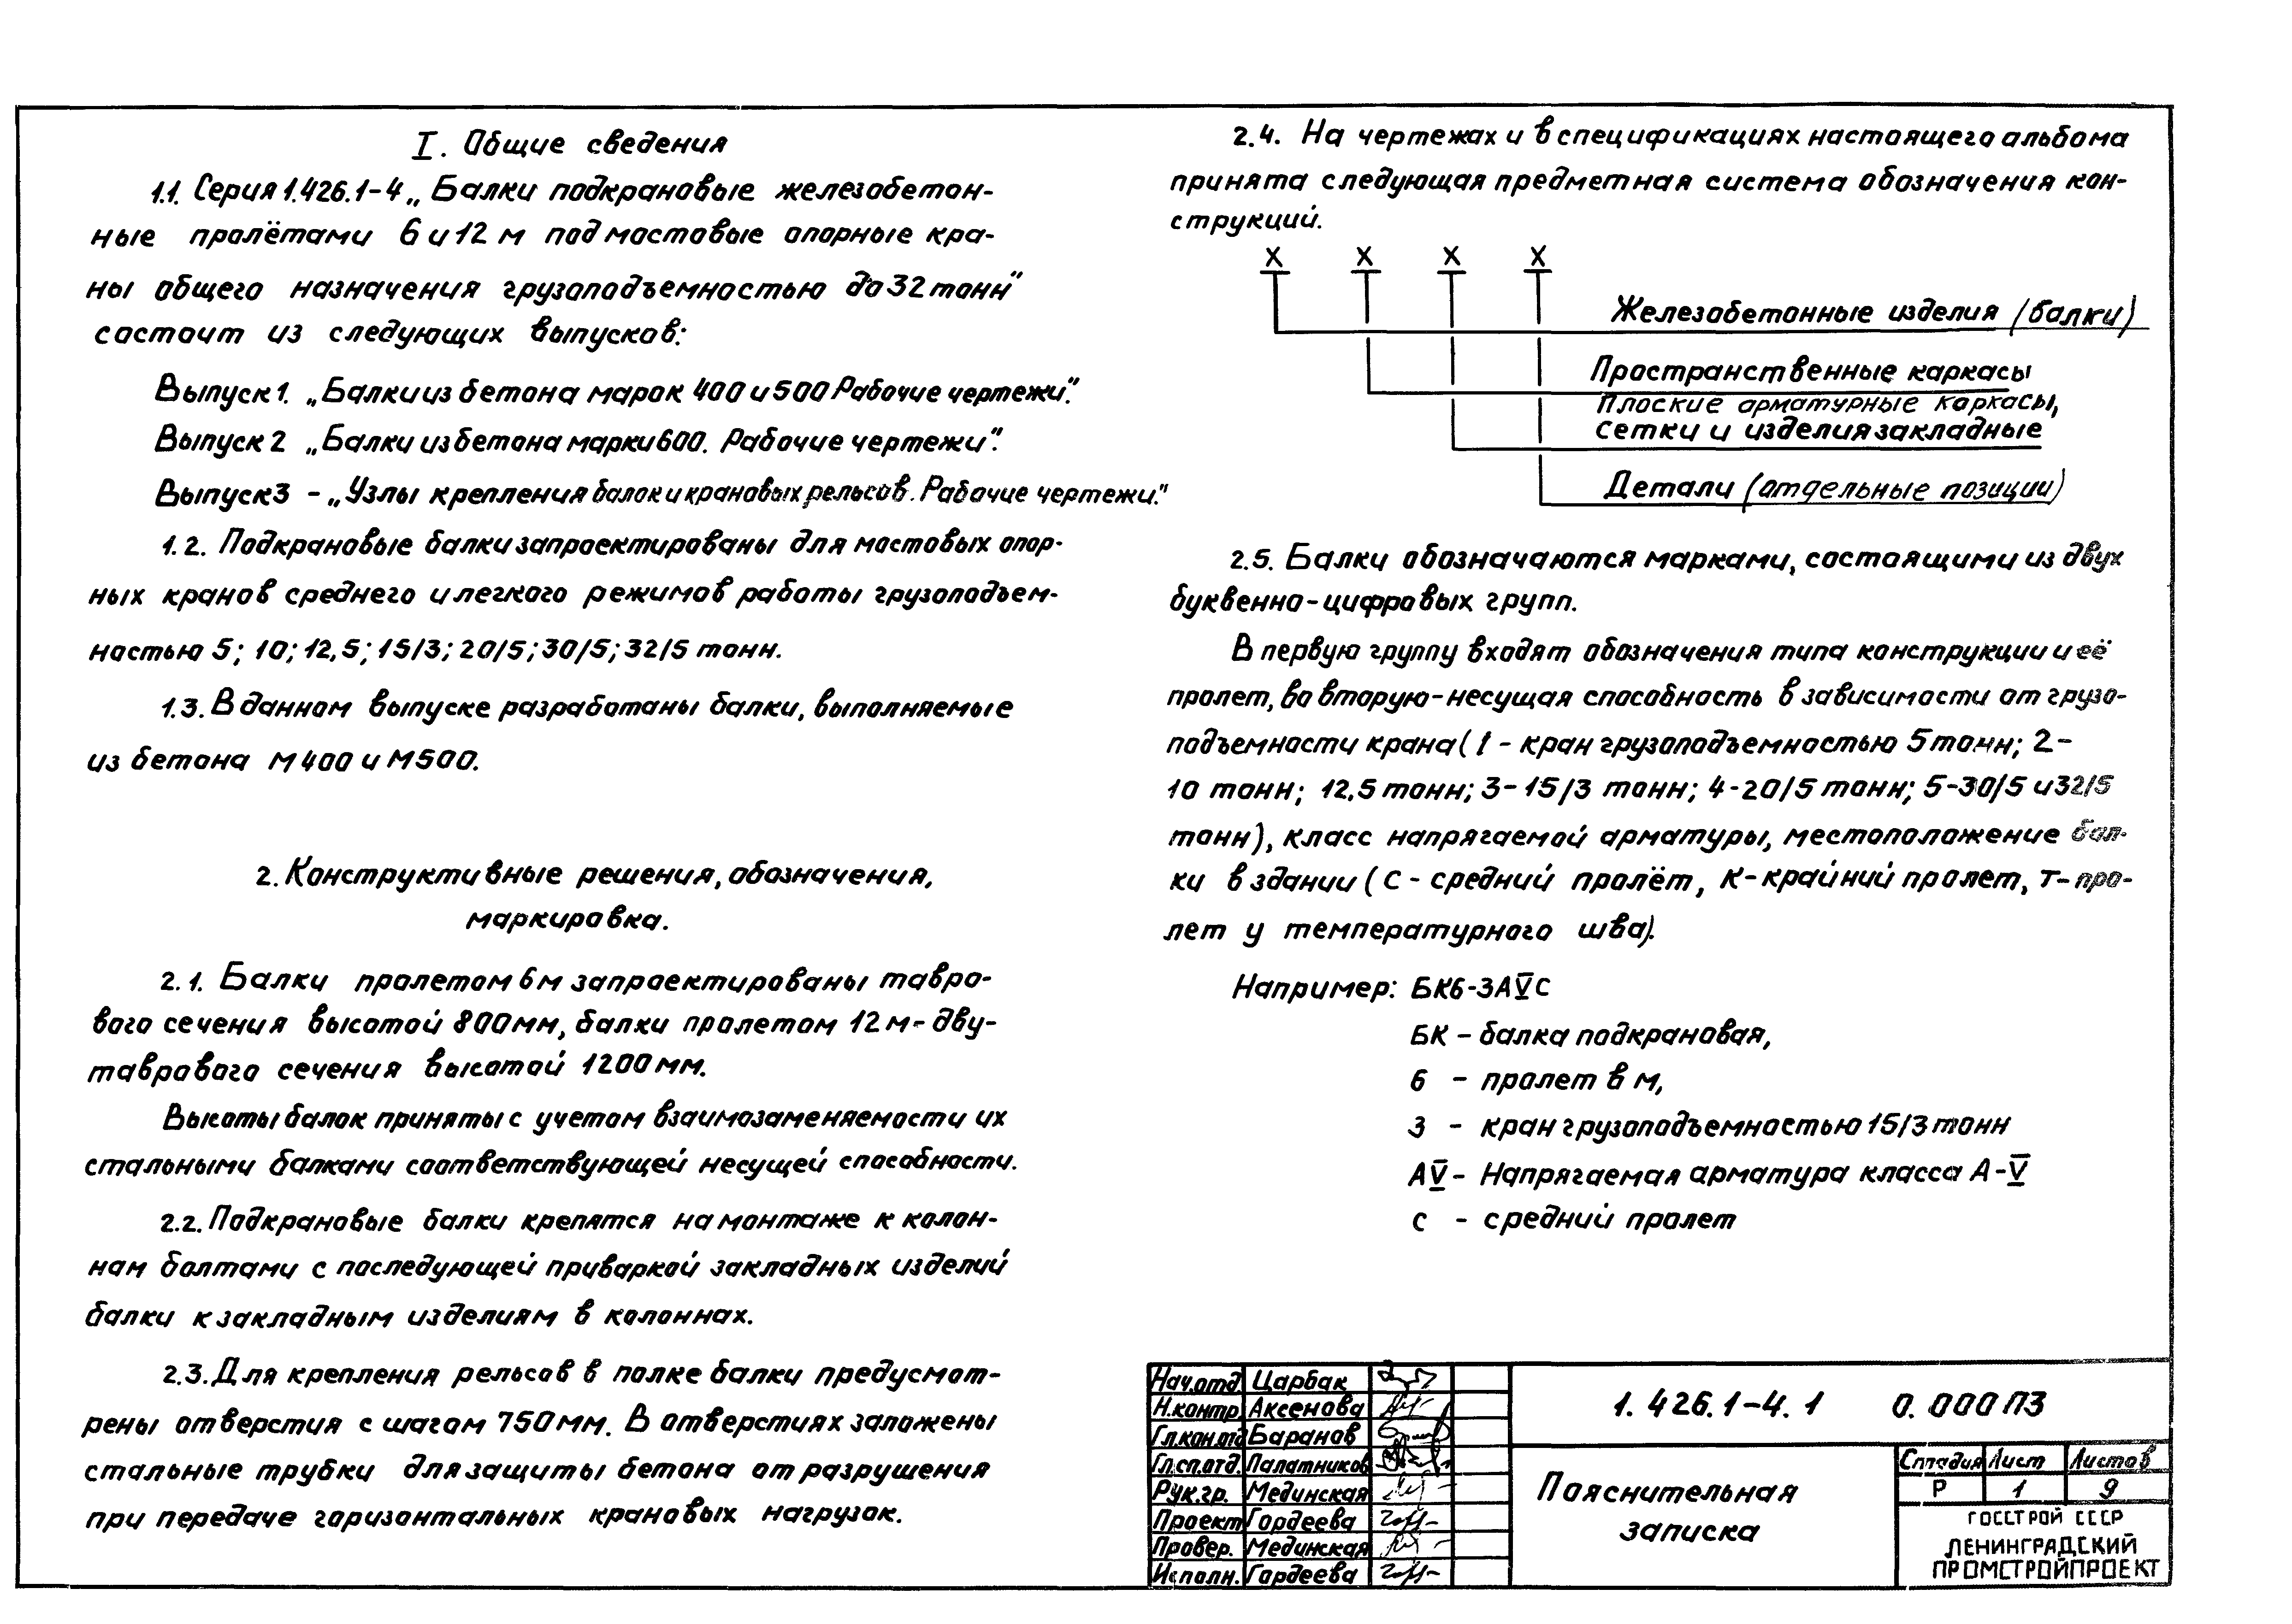 I. Общие сведения
1.1. Серия 1.426.1-4 „Балки подкрановые железобетон-
ные пролётами 6 и 12 м под мостовые опорные кра-
ны общего назначения грузоподъемностью до 32 тонн"
состоит из следующих выпусков:
Выпуск 1. „Балки из бетона марок 400 и 500 Рабочие чертежи".
Выпуск 2 „Балки из бетона марки 600. Рабочие чертежи".
Выпуск 3 - „Узлы крепления балок и крановых рельсов. Рабочие чертежи."
1.2. Подкрановые балки запроектированы для мостовых опор-
ных кранов среднего и легкого режимов работы грузоподъем-
ностью 5; 10; 12,5; 15/3; 20/5; 30/5; 32/5 тонн.
1.3. В данном выпуске разработаны балки, выполняемые
из бетона М400 и М500.
2. Конструктивные решения, обозначения,
маркировка.
2.1. Балки пролетом 6м запроектированы тавро-
вого сечения высотой 800мм, балки пролетом 12м - дву-
таврового сечения высотой 1200мм.
Высоты балок приняты с учетом взаимозаменяемости их
стальными балками соответствующей несущей способности.
2.2. Подкрановые балки крепятся на монтаже к колон-
нам болтами с последующей приваркой закладных изделий
балки к закладным изделиям в колоннах.
2.3. Для крепления рельсов в полке балки предусмот-
рены отверстия с шагом 750мм. В отверстиях заложены
стальные трубки для защиты бетона от разрушения
при передаче горизонтальных крановых нагрузок.
2.4. На чертежах и в спецификациях настоящего альбома
принята следующая предметная система обозначения кон-
струкций.
X X X X
Железобетонные изделия (балки)
Пространственные каркасы
Плоские арматурные каркасы,
сетки и изделия закладные
Детали (отдельные позиции)
2.5. Балки обозначаются марками, состоящими из двух
буквенно-цифровых групп.
В первую группу входят обозначения типа конструкции и её
пролет, во вторую - несущая способность в зависимости от грузо-
подъемности крана (1 - кран грузоподъемностью 5 тонн; 2 -
10 тонн; 12,5 тонн; 3 - 15/3 тонн; 4 - 20/5 тонн; 5 - 30/5 и 32/5
тонн), класс напрягаемой арматуры, местоположение бал-
ки в здании (С - средний пролёт, К - крайний пролет, Т - про-
лет у температурного шва).
Например: БК6-3АVС
БК - балка подкрановая,
6 - пролет в м,
3 - кран грузоподъемностью 15/3 тонн
АV - Напрягаемая арматура класса А-V
С - средний пролет
Нач.отд. Царбак
Н.контр. Аксенова
Гл.кон.отд Баранов
Гл.сп.отд. Палатников
Рук.гр. Мединская
Проект Гордеева
Провер. Мединская
Исполн. Гордеева
1.426.1-4.1 0.000ПЗ
Пояснительная
записка
Стадия Лист Листов
Р 1 9
ГОССТРОЙ СССР
ЛЕНИНГРАДСКИЙ
ПРОМСТРОЙПРОЕКТ